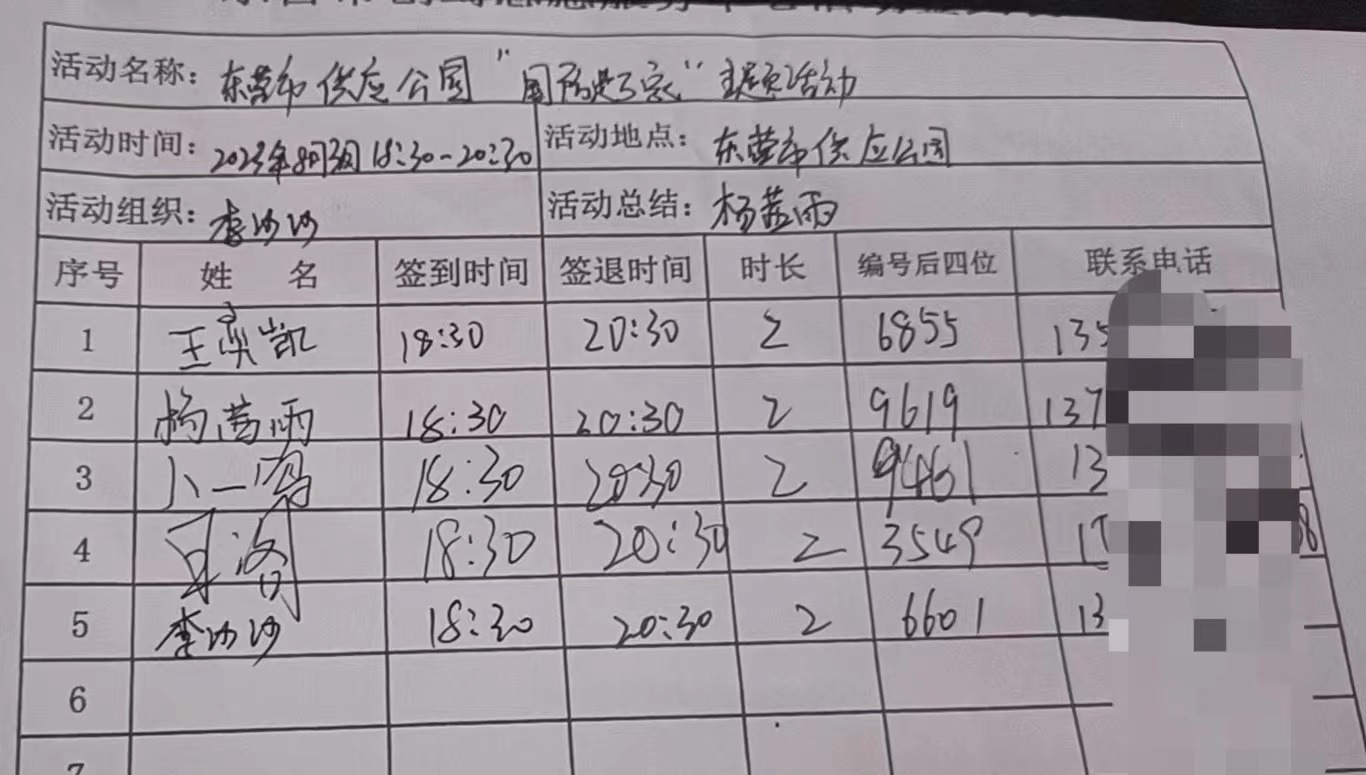 活动名称：东营市供应公园“ ”主题活动
活动时间：2023年8月 18:30-20:30 活动地点：东营市供应公园
活动组织：李沙沙 活动总结：杨茜雨
序号 姓 名 签到时间 签退时间 时长 编号后四位 联系电话
1 王奕凯 18:30 20:30 2 6855 135
2 杨茜雨 18:30 20:30 2 9619 137
3 18:30 20:30 2 9461 13
4 18:30 20:30 2 3549 17
5 李沙沙 18:30 20:30 2 6601 13
6
7